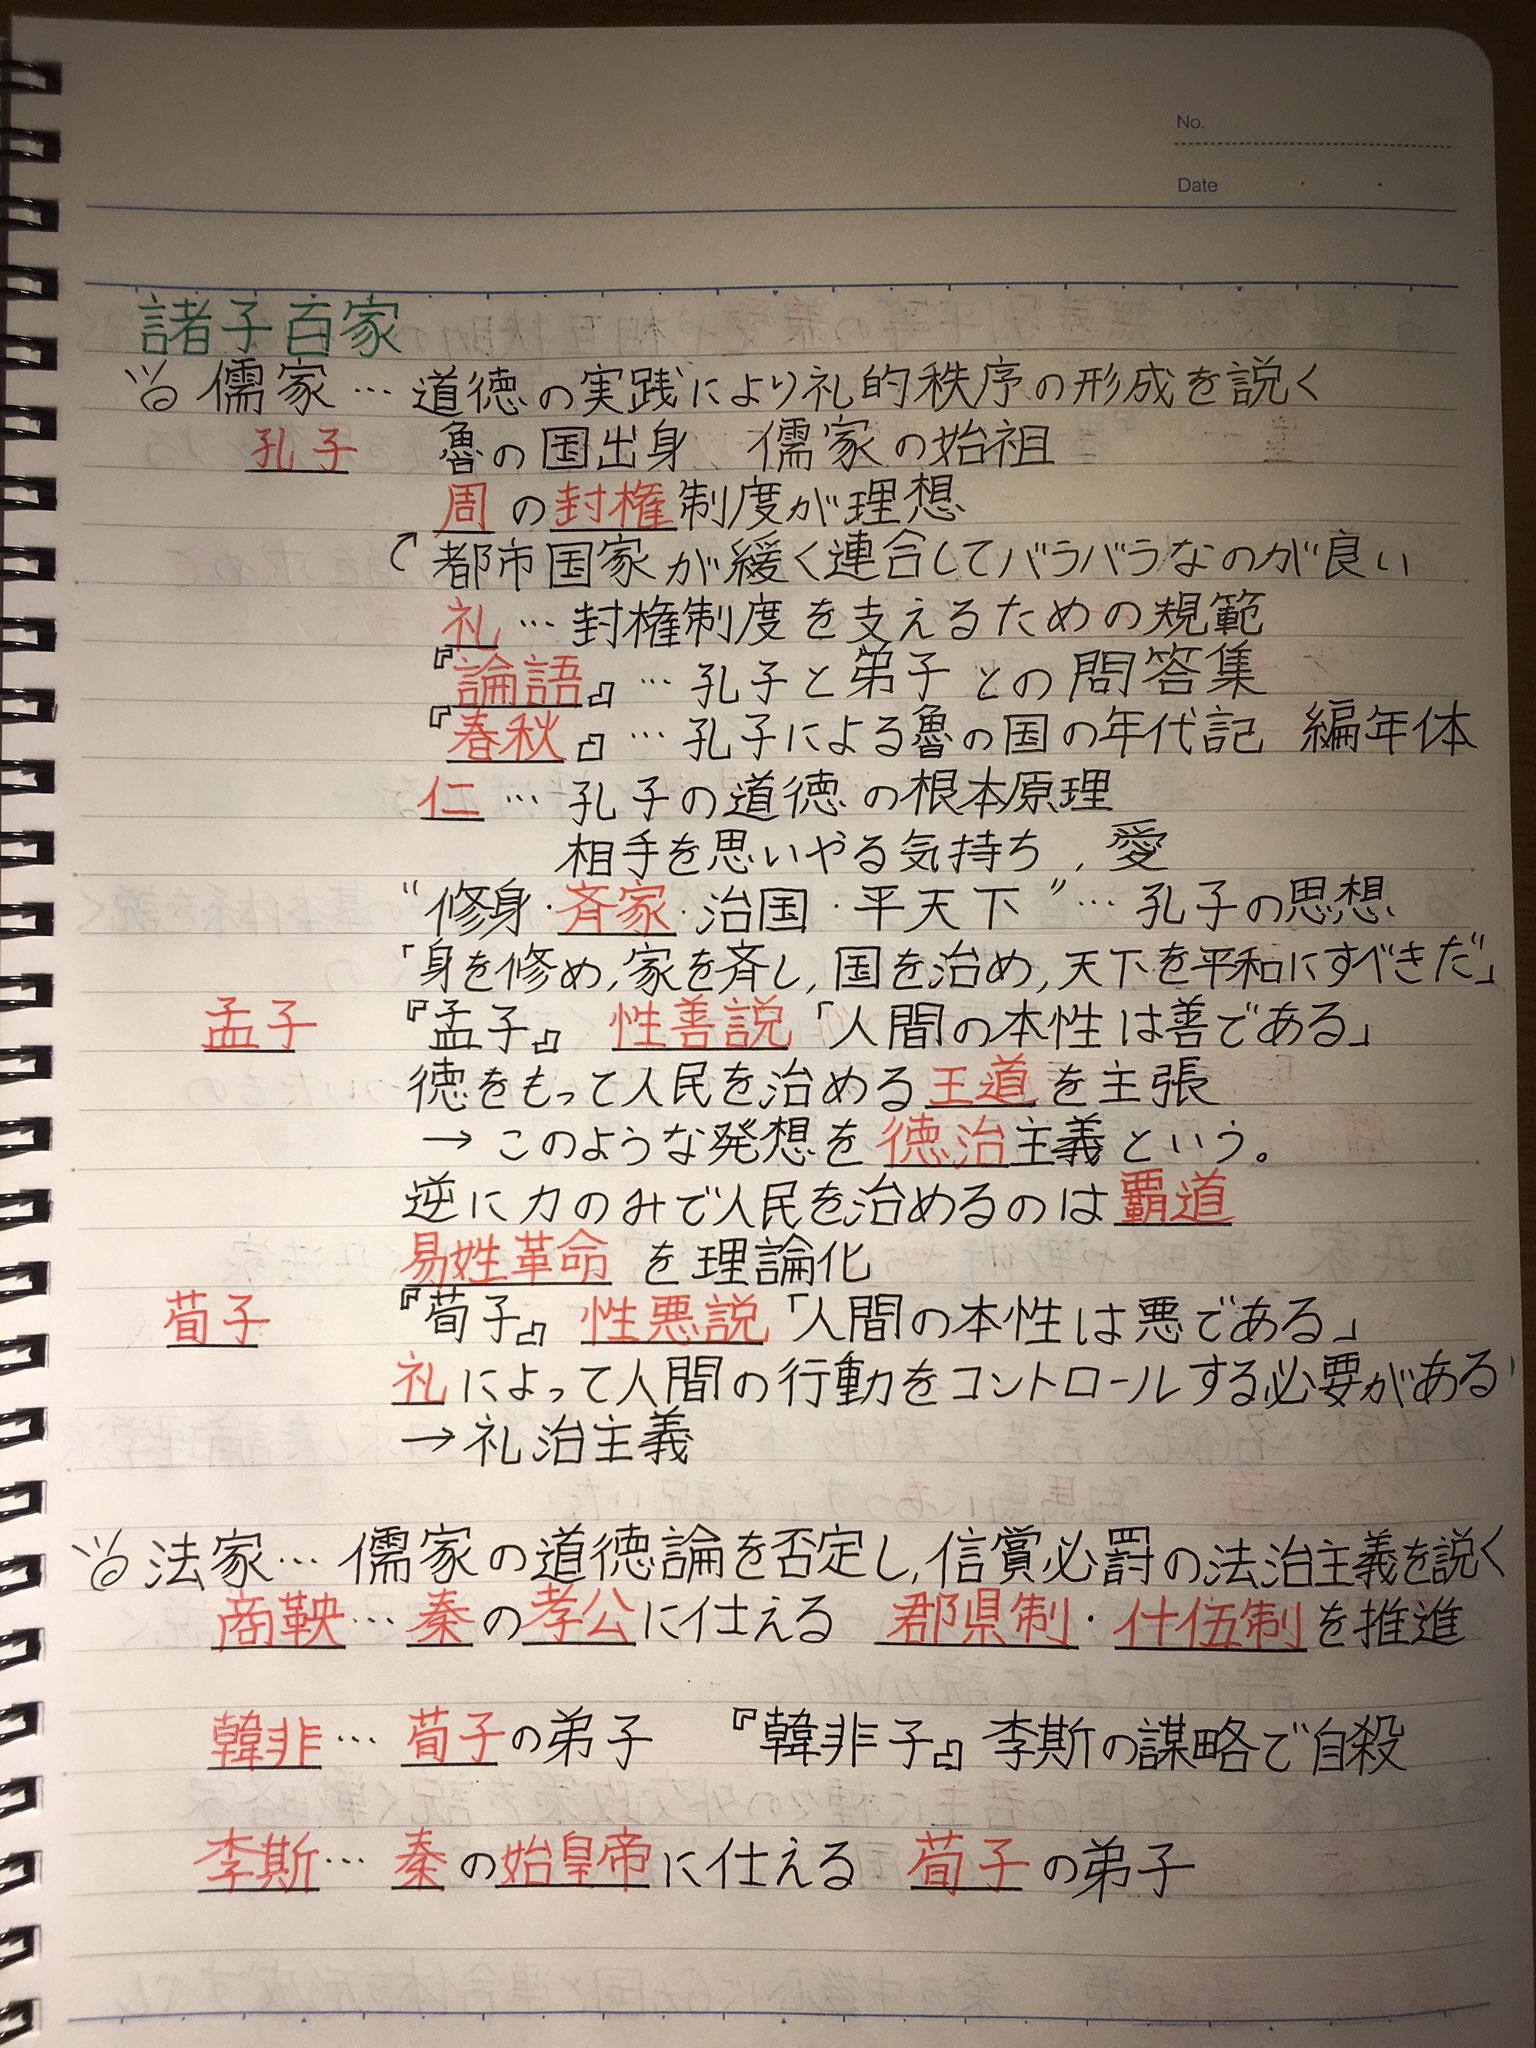 No.
Date
諸子百家
儒家…道徳の実践により礼的秩序の形成を説く
孔子 魯の国出身 儒家の始祖
周の封権制度が理想
都市国家が緩く連合してバラバラなのが良い
礼…封権制度を支えるための規範
『論語』…孔子と弟子との問答集
『春秋』…孔子による魯の国の年代記 編年体
仁…孔子の道徳の根本原理
相手を思いやる気持ち,愛
"修身・斉家・治国・平天下"…孔子の思想
「身を修め,家を斉し,国を治め,天下を平和にすべきだ」
孟子 『孟子』 性善説「人間の本性は善である」
徳をもって人民を治める王道を主張
→このような発想を徳治主義という。
逆に力のみで人民を治めるのは覇道
易姓革命を理論化
荀子 『荀子』性悪説「人間の本性は悪である」
礼によって人間の行動をコントロールする必要がある
→礼治主義
法家…儒家の道徳論を否定し,信賞必罰の法治主義を説く
商鞅…秦の孝公に仕える 郡県制・什伍制を推進
韓非…荀子の弟子 『韓非子』李斯の謀略で自殺
李斯…秦の始皇帝に仕える 荀子の弟子